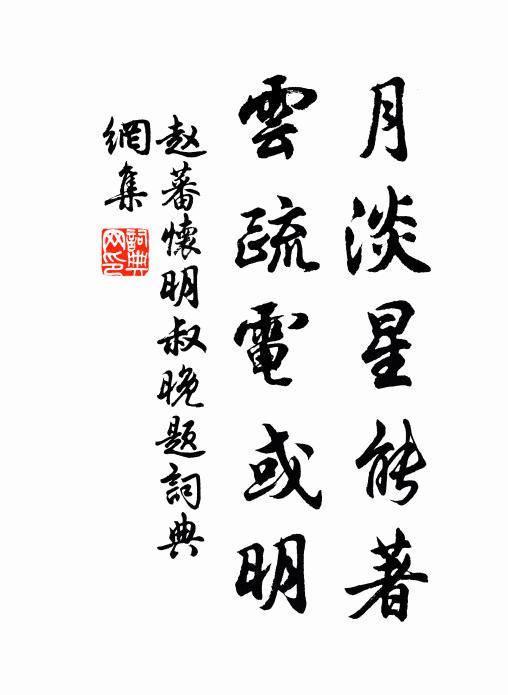 月淡星能著
雲疏電或明
赵蕃懷明叔晚題詞典
網集
詞典
网印